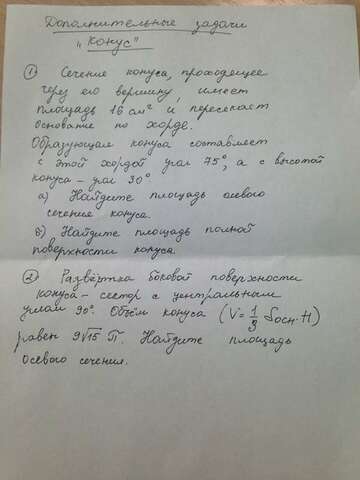 Дополнительные задачи
"Конус"
① Сечение конуса, проходящее
через его вершину, имеет
площадь 16 см² и пересекает
основание по хорде.
Образующая конуса составляет
с этой хордой угол 75°, а с высотой
конуса – угол 30°
а) Найдите площадь осевого
сечения конуса.
в) Найдите площадь полной
поверхности конуса.
② Развёртка боковой поверхности
конуса – сектор с центральным
углом 90°. Объём конуса (V = 1/3 Sосн·H)
равен 9√15 π. Найдите площадь
осевого сечения.